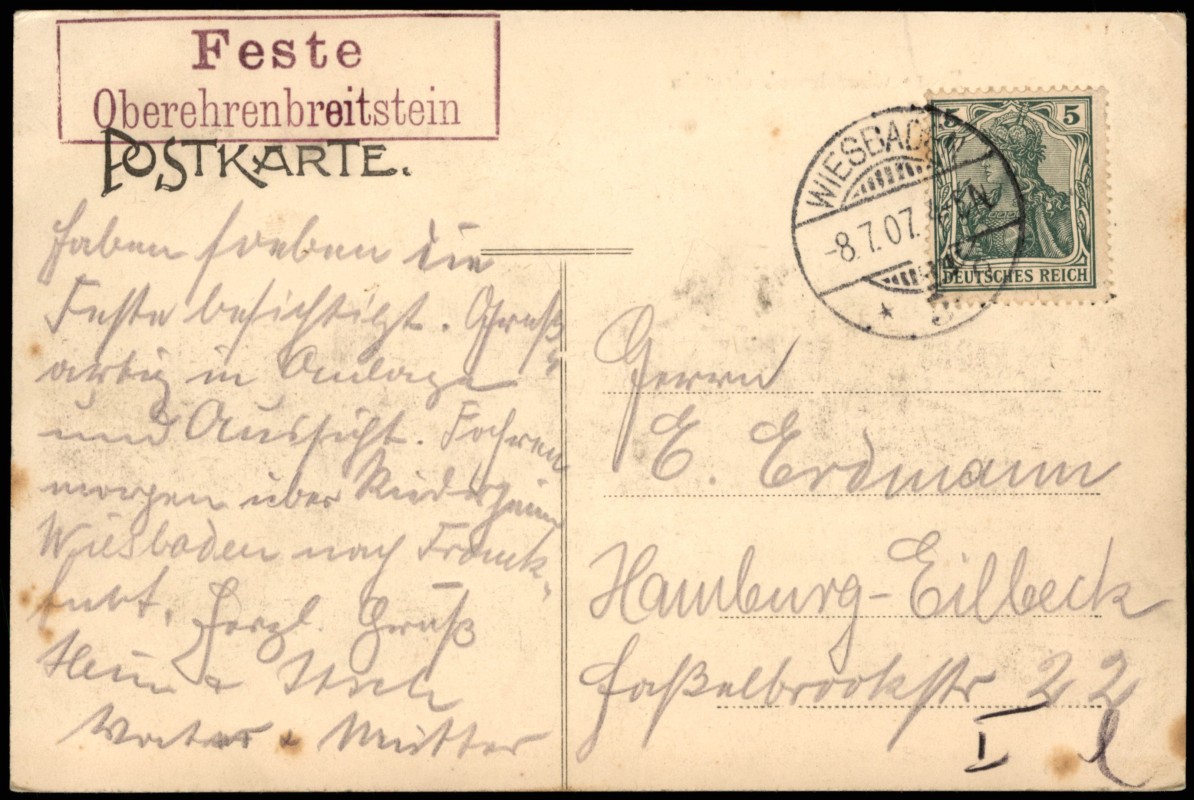 Feste
Oberehrenbreitstein
POSTKARTE.
WIESBADEN
-8.7.07.
5 5
DEUTSCHES REICH
Haben soeben die
Feste besichtigt. Groß-
artig in Anlage
und Aussicht. Fahren
morgen über
Wiesbaden nach Frank-
furt. Herzl. Gruß
Vater & Mutter
Herrn
E. Erdmann
Hamburg-Eilbeck
Haßelbrookstr 22
I l